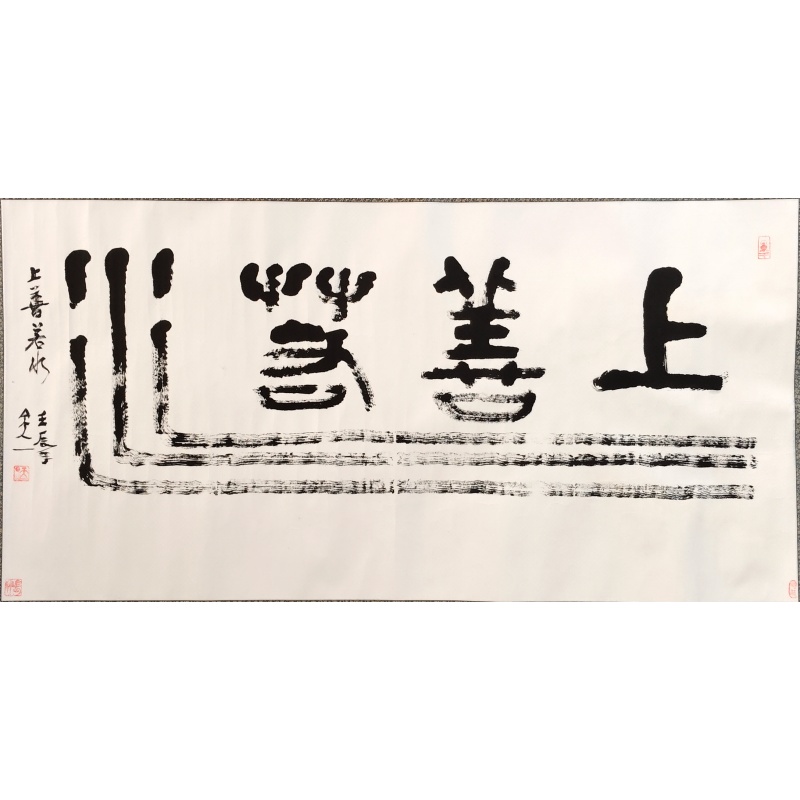 上善若水
上善若水
壬辰年